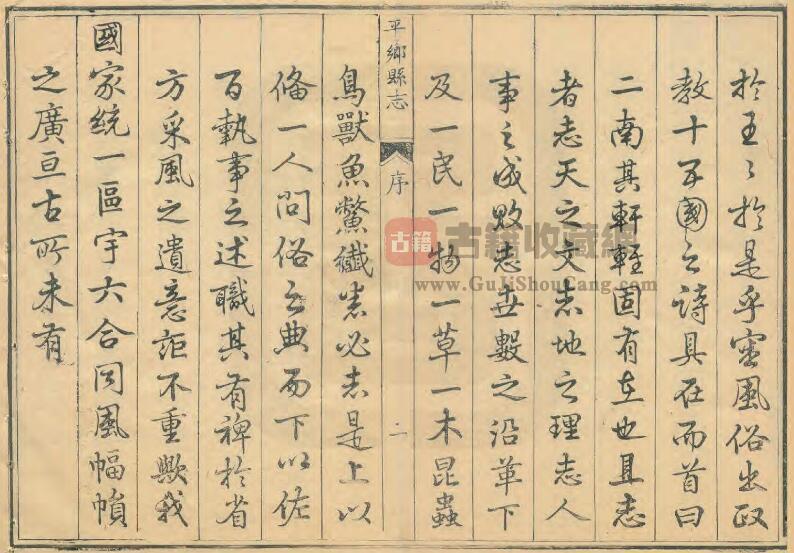 於王〻於是乎審風俗出政
教十五國之詩具在而首曰
二南其軒輊固有在也且志
者志天之文志地之理志人
事之成敗志世數之沿革下
及一民一物一草一木昆蟲
平鄉縣志 序 二
鳥獸魚鱉纖悉必志是上以
俻一人問俗之典而下以佐
百執事之述職其有裨於省
方采風之遺意詎不重歟我
國家統一區宇六合同風幅幀
之廣亘古所未有
古籍
古籍收藏网
www.GuJiShouCang.com